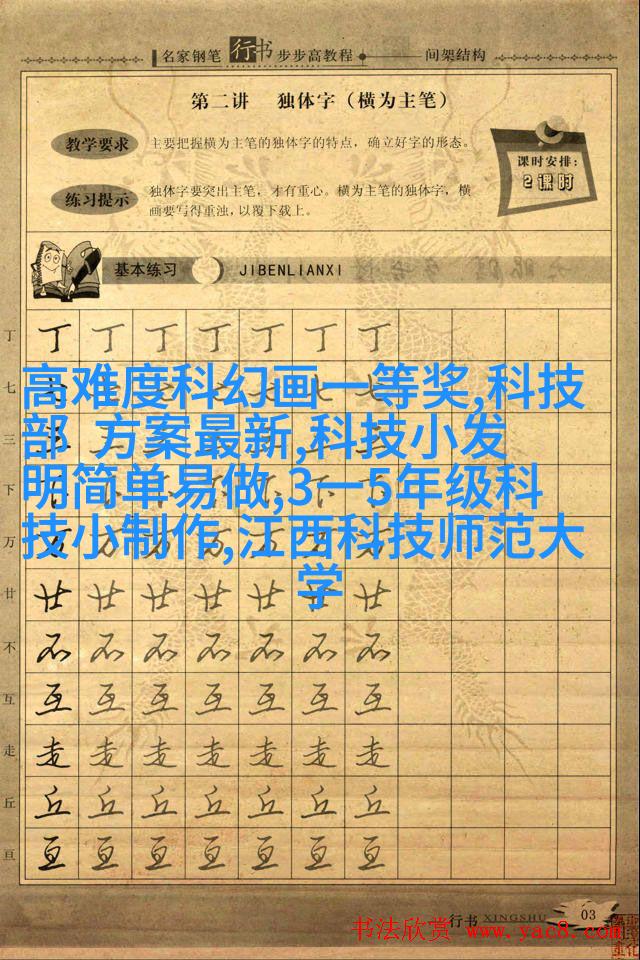 名家钢笔 行书 步步高教程 间架结构
第二讲 独体字（横为主笔）
教学要求 主要把握横为主笔的独体字的特点，确立好字的形态。
课时安排：
2课时
练习提示 独体字要突出主笔，才有重心。横为主笔的独体字，横
画要写得重浊，以覆下载上。
基本练习 JIBENLIANXI
丁 丁 丁 丁 丁 丁 丁 丁
七
高难度科幻画一等奖,科技
三
部 方案最新,科技小发
下
明简单易做,3一5年级科
万
技小制作,江西科技师范大
学
廿 廿 廿 廿 廿 廿 廿 廿
不 不 不 不 不 不 不 不
互 互 互 互 互 互 互 互
走 走 走 走 走 走 走 走
丘 丘 丘 丘 丘 丘 丘 丘
亘 亘 亘 亘 亘 亘 亘 亘
行书 XINGSHU 03
书法欣赏 www.yac8.com